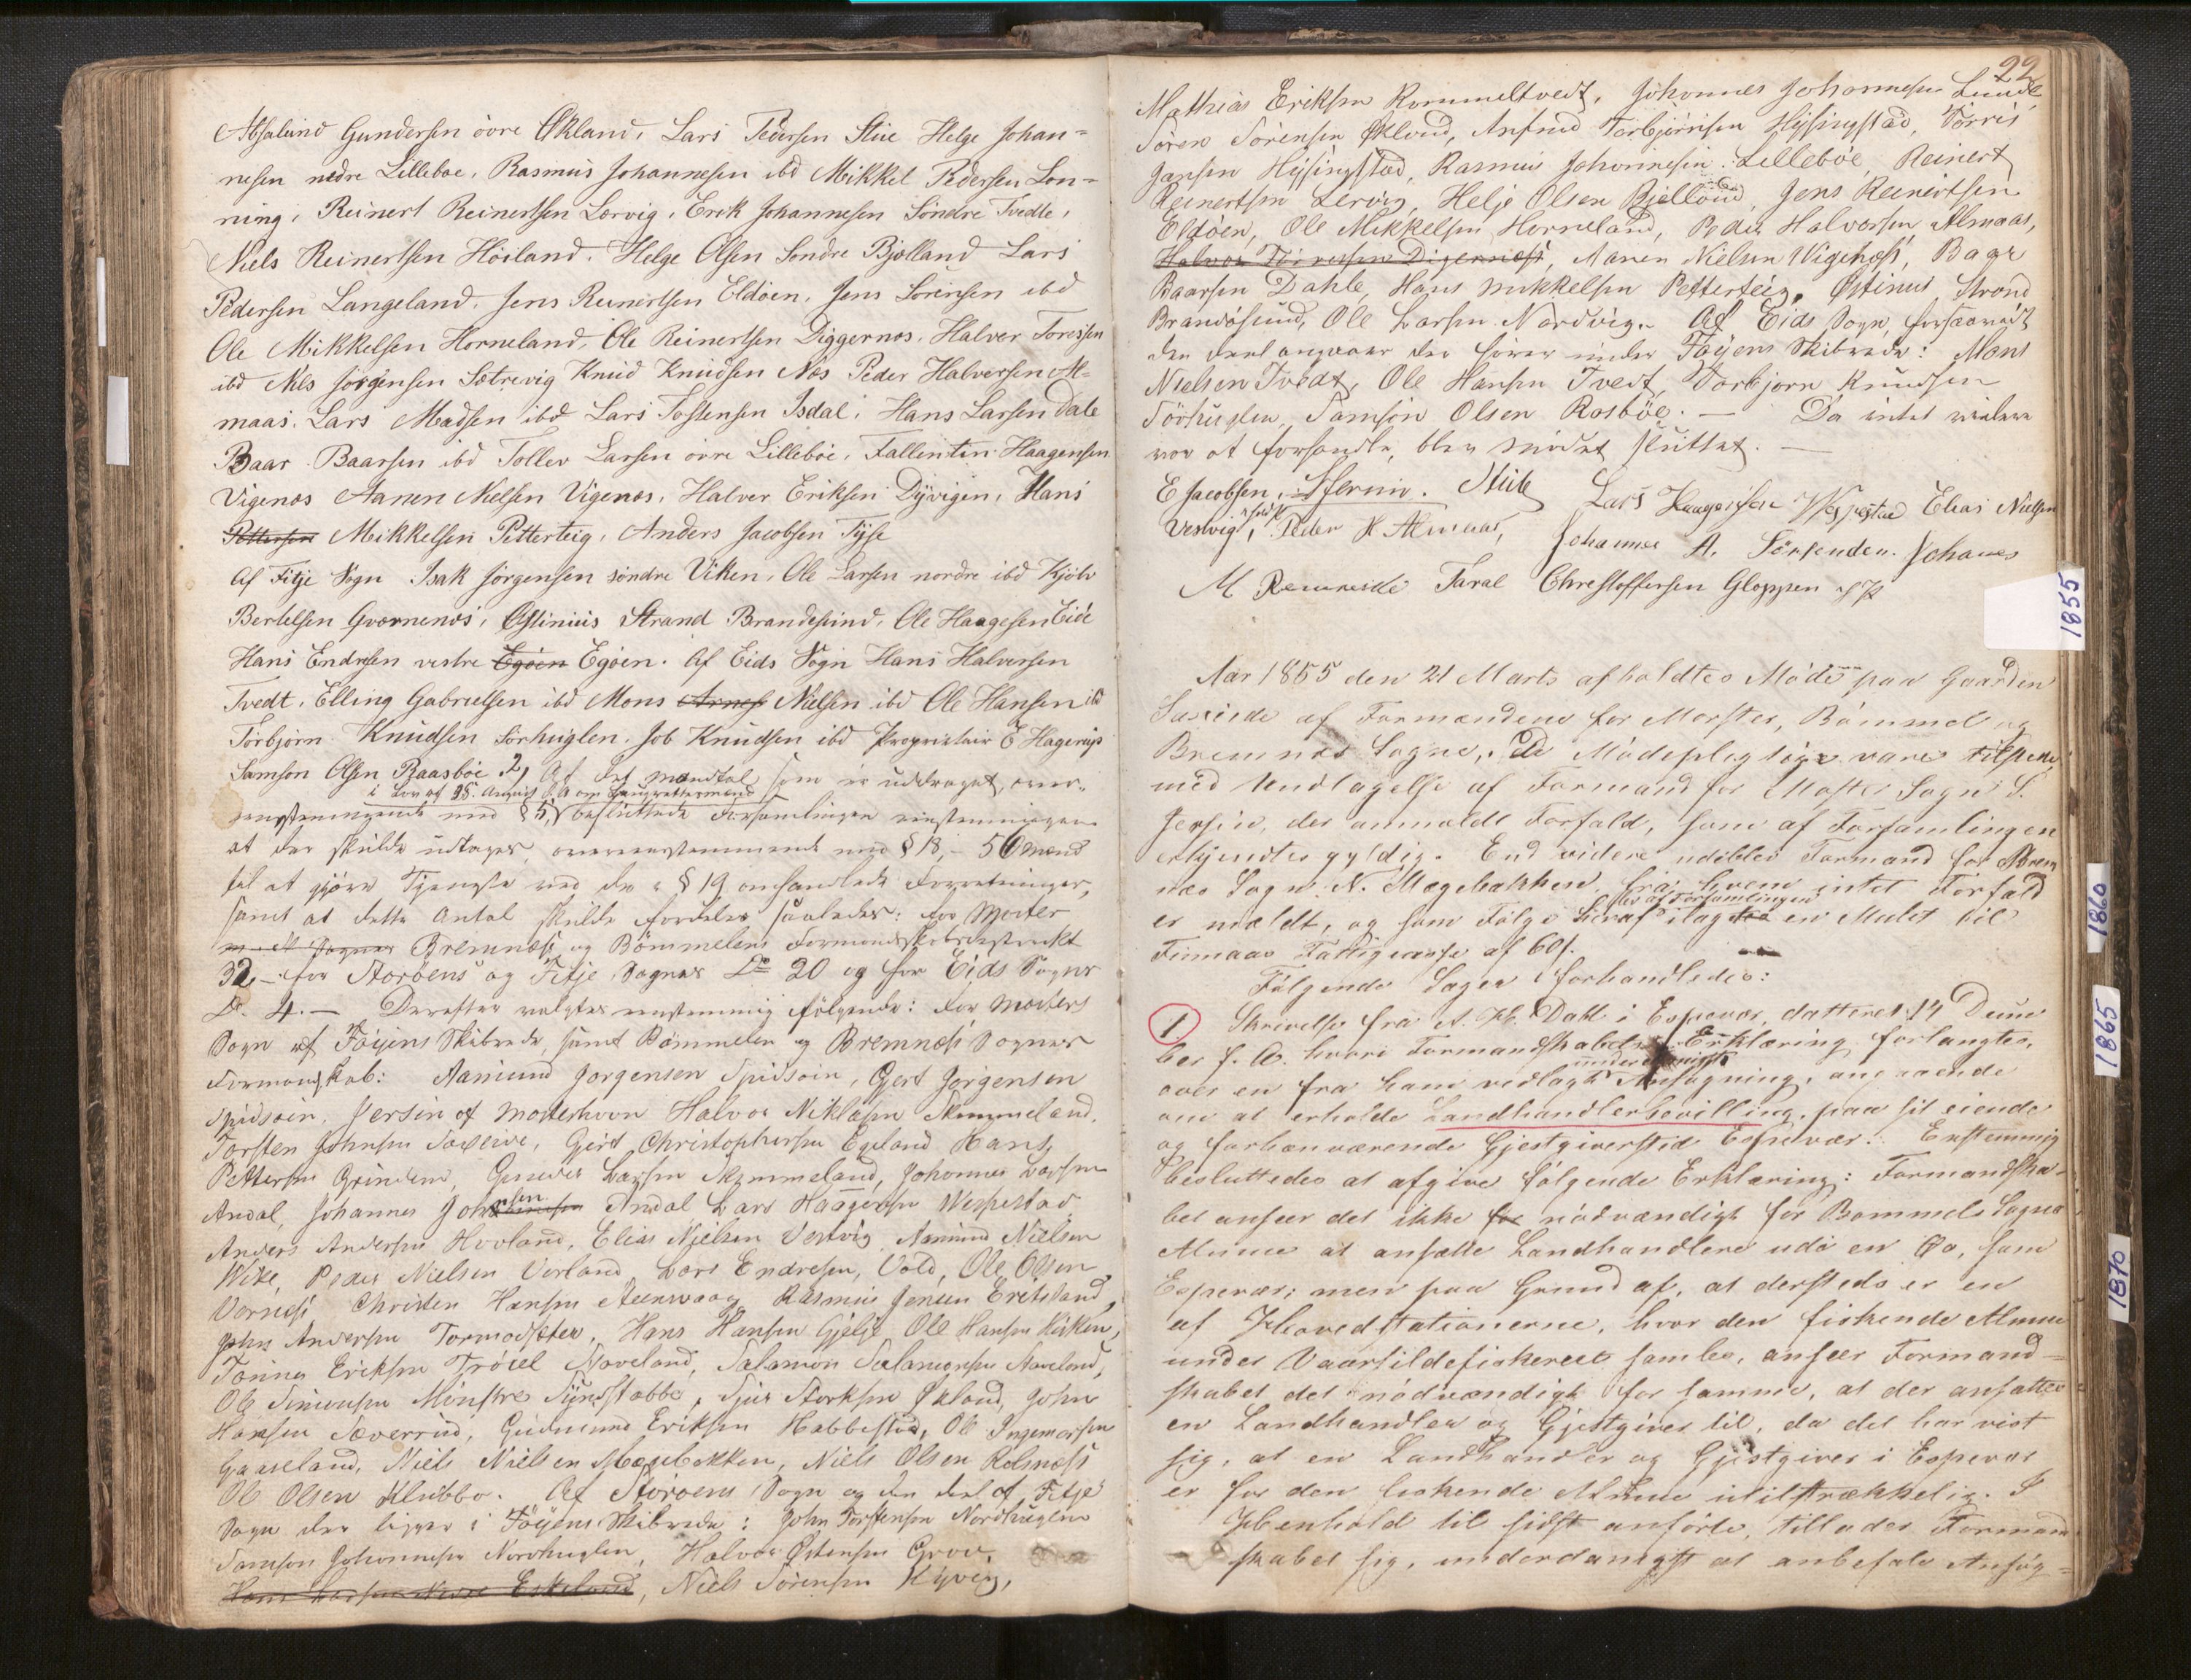 Absalund Gundersen övre Økland, Lars Pedersen Stue Helge Johan-
nesen nedre Lilleboe, Rasmus Johannesen ibd Mikkel Pedersen Lon-
ning, Reinert Reinertsen Lervig, Erik Johannesen Söndre Tvedte,
Niels Reinertsen Höiland. Helge Olsen Söndre Bjelland Lars
Pedersen Langeland. Jens Reinertsen Eldöen, Jens Sörensen ibd
Ole Mikkelsen Horneland, Ole Reinertsen Diggernos. Halver Toresen
ibd Nils Jörgensen Sætrevig Knud Knudsen Nös Peder Halversen Al-
maas. Lars Madsen ibd Lars Tostensen Isdal, Hans Larsen Dale
Baar Baarsen ibd Tollev Larsen övre Lilleböe, Fallentin Haagensen
Vigenos Aanen Nielsen Vigenos, Halver Eriksen Dyvigen, Hans
Pettersen Mikkelsen Petterteig, Anders Jacobsen Tyse
Af Fitje Sogn Isak Jörgensen söndre Viken, Ole Larsen nordre ibd Kjöln
Bertelsen Gvornenos, Østinius Strand Brandesund, Ole Haagesen Eide
Hans Endresen vestre Egöen Egöen. Af Eids Sogn Hans Halversen
Tvedt, Elling Gabrielsen ibd Mons Nielsen ibd Ole Hansen ibd
Torbjörn Knudsen Sörhuglen. Job Knudsen ibd Proprietair E Hagerup
Samson Olsen Raasböe 2, Af det mandtal som er uddraget, over-
i Lov af 28. August om Laugrettesmænd
eensstemmende med § 5, besluttede Forsamlingen eenstemmigen
at der skulde udtages, overeensstemmende med § 18, – 56 mænd
til at gjöre Tjeneste ved de i § 19 omhandlede Forretninger,
samt at dette Antal skulde fordeles saaledes: for Moster
Sogner Bremnæs og Bömmelens Formandskabsdistrikt
32 – for Storöens og Fitje Sogner Do 20 og for Eids Sogn
Do. 4. – Derefter valgtes eenstemmig fölgende: For Mosters
Sogn af Föyens Skibrede, samt Bömmelen og Bremnæs Sogners
Formandskab: Aamund Jorgensen Spidsöin, Gjert Jörgensen
Spidsöin, Jersin af Mosterhavn Halvor Niklasen Skimmeland.
Torsten Johnsen Saxeive, Gjert Christophersen Egeland Hans
Pettersen Grinden, Gunder Larsen Skimmeland, Johannes Larsen
Andal, Johannes Johnsen Andal Lars Haagensen Wespestad
Anders Andersen Hovland, Elias Nielsen Vestvig Aamund Nielsen
Wike, Peder Nielsen Vorland Lars Endresen, Vold, Ole Olsen
Vornæs Christen Hansen Steenvaag Rasmus Jensen Eretsland,
John Andersen Tormodsæter, Hans Hansen Gjelje Ole Hansen Hisken,
Tönnes Eriksen Tröiel Noveland, Salamon Salamonsen Naveland,
Ole Simonsen Mönstre Synstabbe, Sjur Storksen Økland, John
Hansen Sæverud, Gudmund Eriksen Habbestad, Ole Ingemorsen
Gaaseland, Niels Nielsen Mæubakken, Niels Olsen Rolsnæs
Ole Olsen Klubbo. Af Storöens Sogn og den deel af Fitje
Sogn der ligger i Föyens Skibrede: John Torstensen Nordhuglen
Samson Johannesen Nordhuglen, Halvor Østensen Grov,
Hans Larsen Nedre Eskeland, Niels Sörensen Kyvig,
22
Mathias Eriksen Rommeltvedt, Johannes Johannesen Lunde
Sören Sörensen Økland, Anfind Torbjörnsen Hysingstad, Torris
Jansen Hysingstad, Rasmus Johannesen Lilleböe, Reinert
Reinertsen Lervig, Helje Olsen Bjelland, Jens Reinertsen
Eldöen, Ole Mikkelsen Horneland, Peder Halvorsen Almaas,
Halvor Toressen Digernæs, Aanen Nielsen Wigenæs, Baar
Baarsen Dahle, Hans Mikkelsen Petterteig, Østinus Strand
Brandösund, Ole Larsen Nordvig. Af Eids Sogn, forsaavidt
den deel angaaer der hörer under Föyens Skibrede: Mons
Nielsen Tvedt, Ole Hansen Tvedt, Torbjorn Knudsen
Sörhuglen, Samson Olsen Rosböe. – Da intet videre
var at forhandle, blev mödet sluttet. –
E Jacobsen, Stub Lars Haagensen Wespestad Elias Nielsen
Vestvig, Peder H Almaas, Johannes A. Sörtenden. Johanes
M Remereide Taral Chrestoffersen Gloppen
1855
Aar 1855 den 21 Marts afholdtes Möde paa Gaarden
Saxeide af Formændene for Moster, Bömmel og
Bremnæs Sogne. De Mödepligtige vare tilstede
med Undtagelse af Formand for Moster Sogn S.
Jersin, der anmeldt Forfald, som af Forsamlingen
erkjendtes gyldig. End videre udeblev Formand for Brem
næs Sogn N. Mægebakken, fra hvem intet Forfald
af Forsamlingen
er meldt, og som Fölge heraf ilagdes en Mulct til
Finnaas Fattigcasse af 60 s.
Fölgende Sager forhandledes:
1 Skrivelse fra A. H. Dahl i Espevær, datteret 14 Decem
ber f. A. hvori Formandskabets Erklæring forlangtes,
underdanigst
over en fra ham vedlagt Ansögning, angaaende
om at erholde Landhandlerbevilling paa sit eiende
og forhenværende Gjestgiversted Espevær. Eenstemmig
besluttedes at afgive fölgende Erklæring: Formandska-
bet anseer det ikke for nödvændigt for Bömmels Sogns
Almue at ansætte Landhandlere udi en Øe, som
Espevær; men paa Grund af, at dersteds er en
af Hovedstationerne, hvor den fiskende Almue
under Vaarsildefiskeriet samles, anseer Formand-
skabet det nödvændigt for samme, at der ansættes
en Landhandler og Gjestgiver til, da det har viist
sig, at en Landhandler og Gjestgiver i Espevær
er for den fiskende Almue utilstrækkelig. I
Henhold til sidst anförte, tillader Formand
skabet sig, underdanigst at anbefale Ansög-
1860
1865
1870